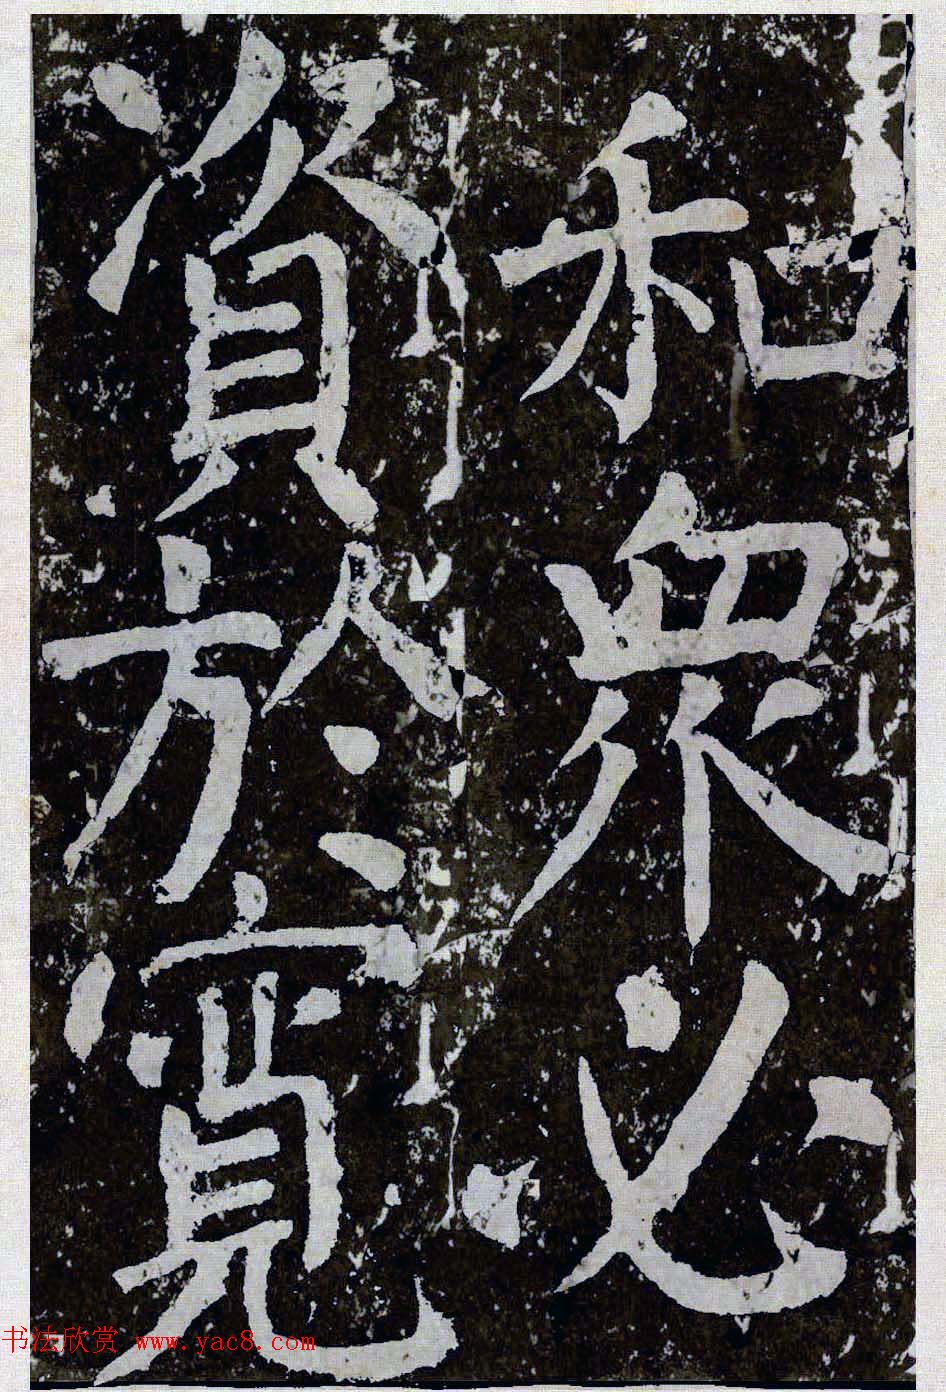 和衆必
資於寬
书法欣赏 www.yac8.com